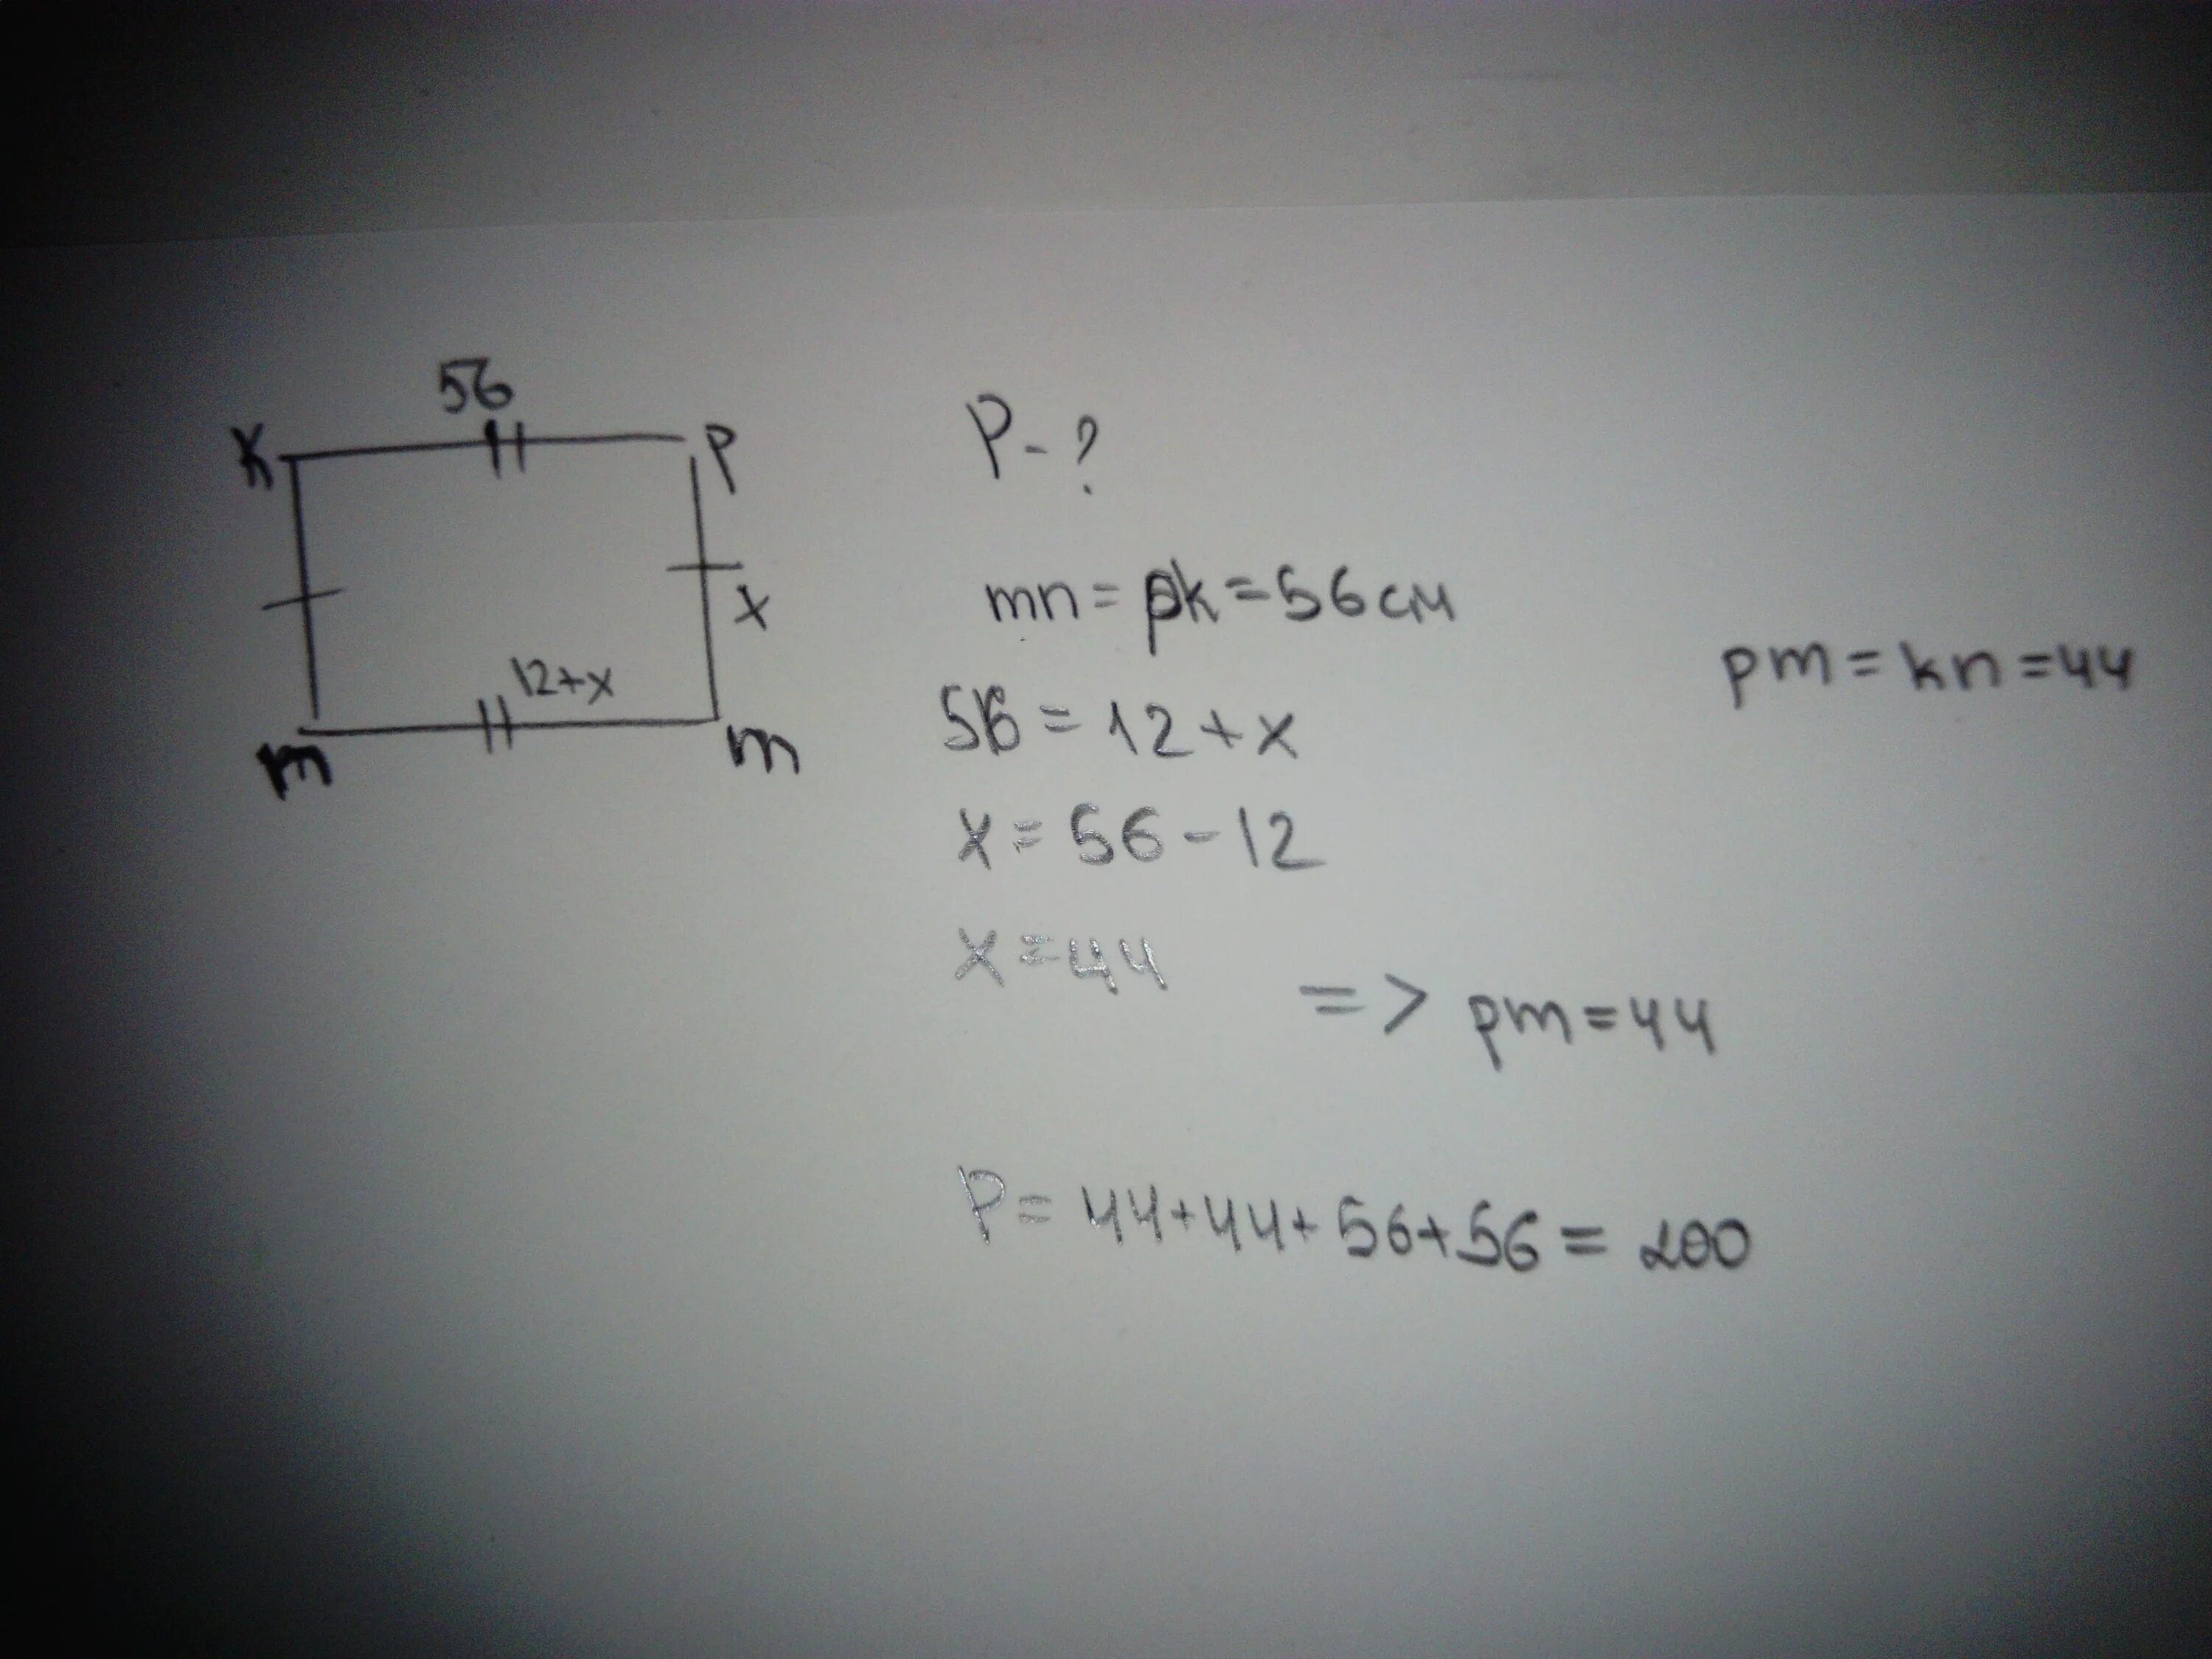 56
K P
x
12+x
m m
P-?
mn = pk = 56 см
56 = 12 + x
x = 56 - 12
x = 44
=> pm = 44
pm = kn = 44
P = 44 + 44 + 56 + 56 = 200